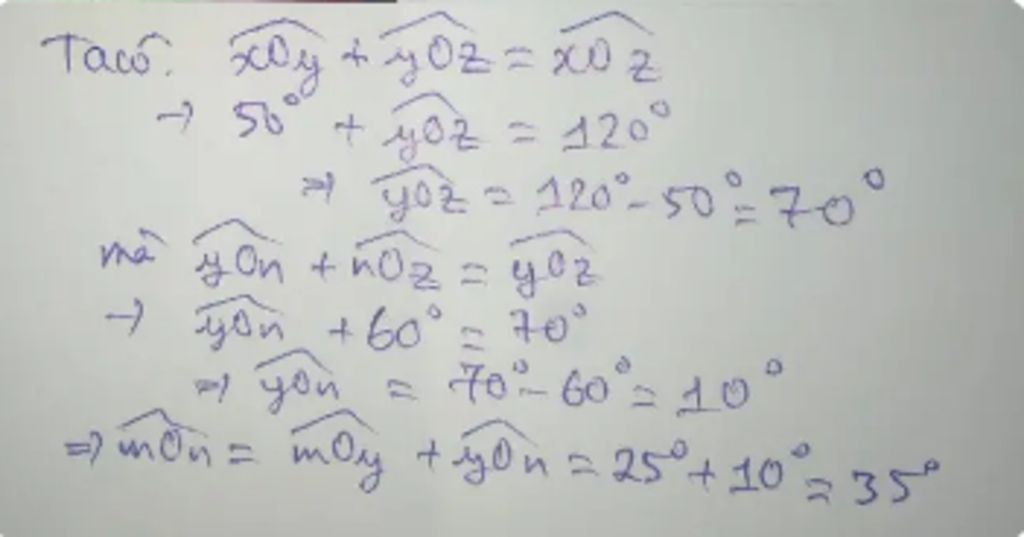 Ta có: $\widehat{xOy} + \widehat{yOz} = \widehat{xOz}$
→ 50° + $\widehat{yOz}$ = 120°
⇒ $\widehat{yOz}$ = 120° - 50° = 70°
mà $\widehat{yOn} + \widehat{nOz} = \widehat{yOz}$
→ $\widehat{yOn}$ + 60° = 70°
⇒ $\widehat{yOn}$ = 70° - 60° = 10°
⇒ $\widehat{mOn} = \widehat{mOy} + \widehat{yOn}$ = 25° + 10° = 35°